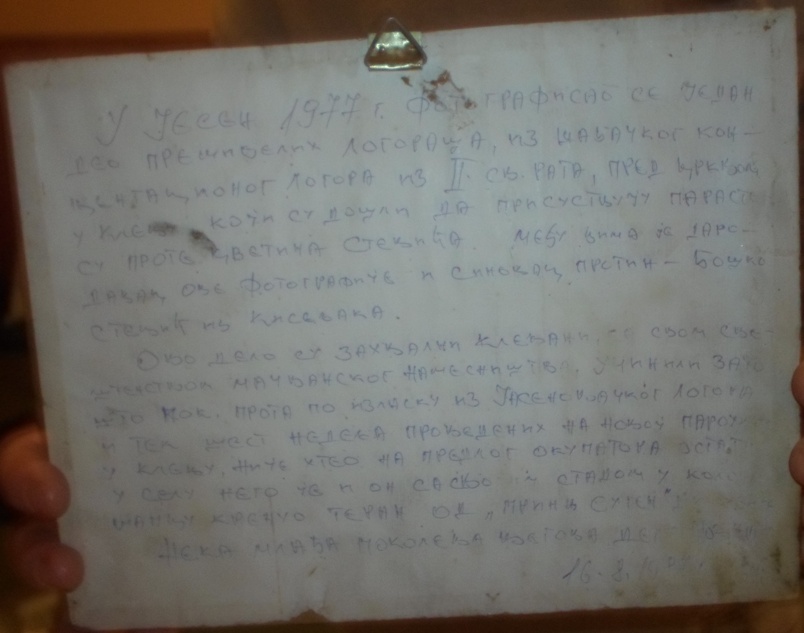 У ЈЕСЕН 1977 г. ФОТОГРАФИСАО СЕ ЈЕДАН
ДЕО ПРЕЖИВЕЛИХ ЛОГОРАША, ИЗ ШАБАЧКОГ КОН-
ЦЕНТАЦИОНОГ ЛОГОРА ИЗ II СВ. РАТА, ПРЕД ЦРКВОМ
У КОЈИ СУ ДОШЛИ ДА ПРИСУСТВУЈУ ПАРАСТО
СУ ПРОТЕ ЦВЕТИНА СТЕЦИЋА. МЕЂУ ЊИМА ЈЕ ДАРО-
ДАВАЦ ОВЕ ФОТОГРАФИЈЕ И СИНОВАЦ ПРОТИН - БОШКО
СТЕЦИЋ ИЗ КИСЕЉАКА.
ОВО ДЕЛО СУ ЗАХВАЛНИ КЛЕЊАНИ, СВОМ СВЕ-
МАЧВАНСКОГ НАМЕСНИШТВА, УЧИНИЛИ ЗАТО
ШТО ПОК. ПРОТА ПО ИЗЛАСКУ ИЗ ЈАСЕНОВАЧКОГ ЛОГОРА
И ТЕК ШЕСТ НЕДЕЉА ПРОВЕДЕНИХ НА НОВОЈ
У КЛЕЊУ, НИЈЕ ХТЕО НА ПРЕДЛОГ ОКУПАТОРА
У СЕЛУ НЕГО ЈЕ И ОН СА СВОЈИМ СТАДОМ У
КРЕНУО ТЕРАН ОД „ПРИНЦ
НЕКА МЛАЂА ПОКОЛЕЊА
16. 8.